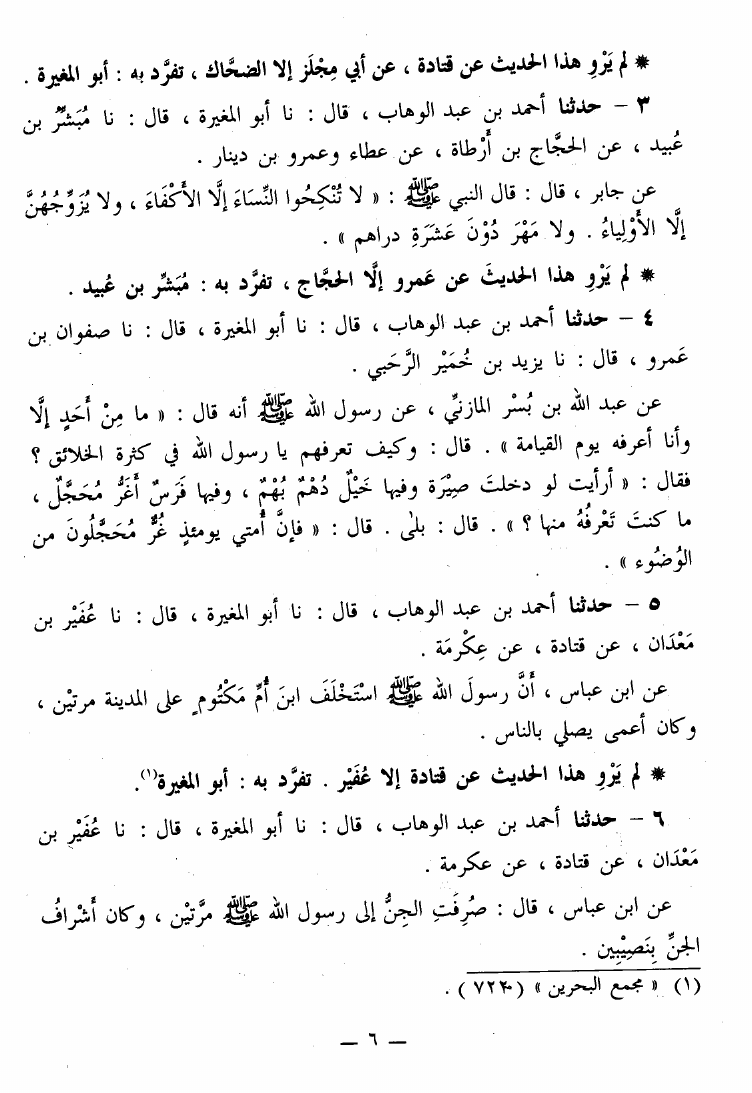 * لم يَرْوِ هذا الحديث عن قتادة ، عن أبي مِجْلَز إلا الضحَّاك ، تفرَّد به : أبو المغيرة .
٣ – حدثنا أحمد بن عبد الوهاب ، قال : نا أبو المغيرة ، قال : نا مُبَشِّر بن
عُبيد ، عن الحجَّاج بن أَرْطاة ، عن عطاء وعمرو بن دينار .
عن جابر ، قال : قال النبي ﷺ : « لا تُنْكِحُوا النِّسَاءَ إلَّا الأَكْفَاءَ ، ولا يُزَوِّجُهُنَّ
إلَّا الأَوْلِياءُ . ولا مَهْرَ دُوْنَ عَشَرَةِ دراهم » .
* لم يَرْوِ هذا الحديثَ عن عَمرو إلَّا الحجَّاج ، تفرَّد به : مُبَشِّر بن عُبيد .
٤ – حدثنا أحمد بن عبد الوهاب ، قال : نا أبو المغيرة ، قال : نا صفوان بن
عَمرو ، قال : نا يزيد بن خُمَيْر الرَّحَبي .
عن عبد الله بن بُسْر المازنيِّ ، عن رسول الله ﷺ أنه قال : « ما مِنْ أَحَدٍ إلَّا
وأنا أعرفه يوم القيامة » . قال : وكيف تعرفهم يا رسول الله في كثرة الخلائق ؟
فقال : « أرأيت لو دخلتَ صِيْرَة وفيها خَيْلٌ دُهْمٌ بُهْمٌ ، وفيها فَرَسٌ أَغَرُّ مُحَجَّلٌ ،
ما كنتَ تَعْرِفُهُ منها ؟ » . قال : بلىٰ . قال : « فإنَّ أُمتي يومئذٍ غُرٌّ مُحَجَّلُونَ من
الوُضُوء » .
٥ – حدثنا أحمد بن عبد الوهاب ، قال : نا أبو المغيرة ، قال : نا عُفَيْر بن
مَعْدَان ، عن قتادة ، عن عِكْرِمَة .
عن ابن عباس ، أَنَّ رسولَ الله ﷺ اسْتَخْلَفَ ابنَ أُمِّ مَكْتُومٍ على المدينة مرتيْن ،
وكان أعمى يصلي بالناس .
* لم يَرْوِ هذا الحديث عن قتادة إلا عُفَيْر . تفرَّد به : أبو المغيرة(١).
٦ – حدثنا أحمد بن عبد الوهاب ، قال : نا أبو المغيرة ، قال : نا عُفَيْر بن
مَعْدَان ، عن قتادة ، عن عكرمة .
عن ابن عباس ، قال : صُرِفَتِ الجِنُّ إلى رسول الله ﷺ مرَّتيْن ، وكان أَشْرافُ
الجنِّ بِنَصِيْبِين .
(١) « مجمع البحرين » (٧٢٣٠) .
— ٦ —